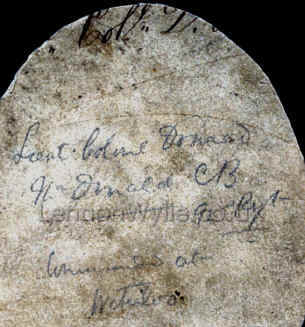 Coll. D.
Lieut. Colonel Donald
McDonald CB
92 Regt
LennonWylie.co.uk
Commanded at
Waterloo